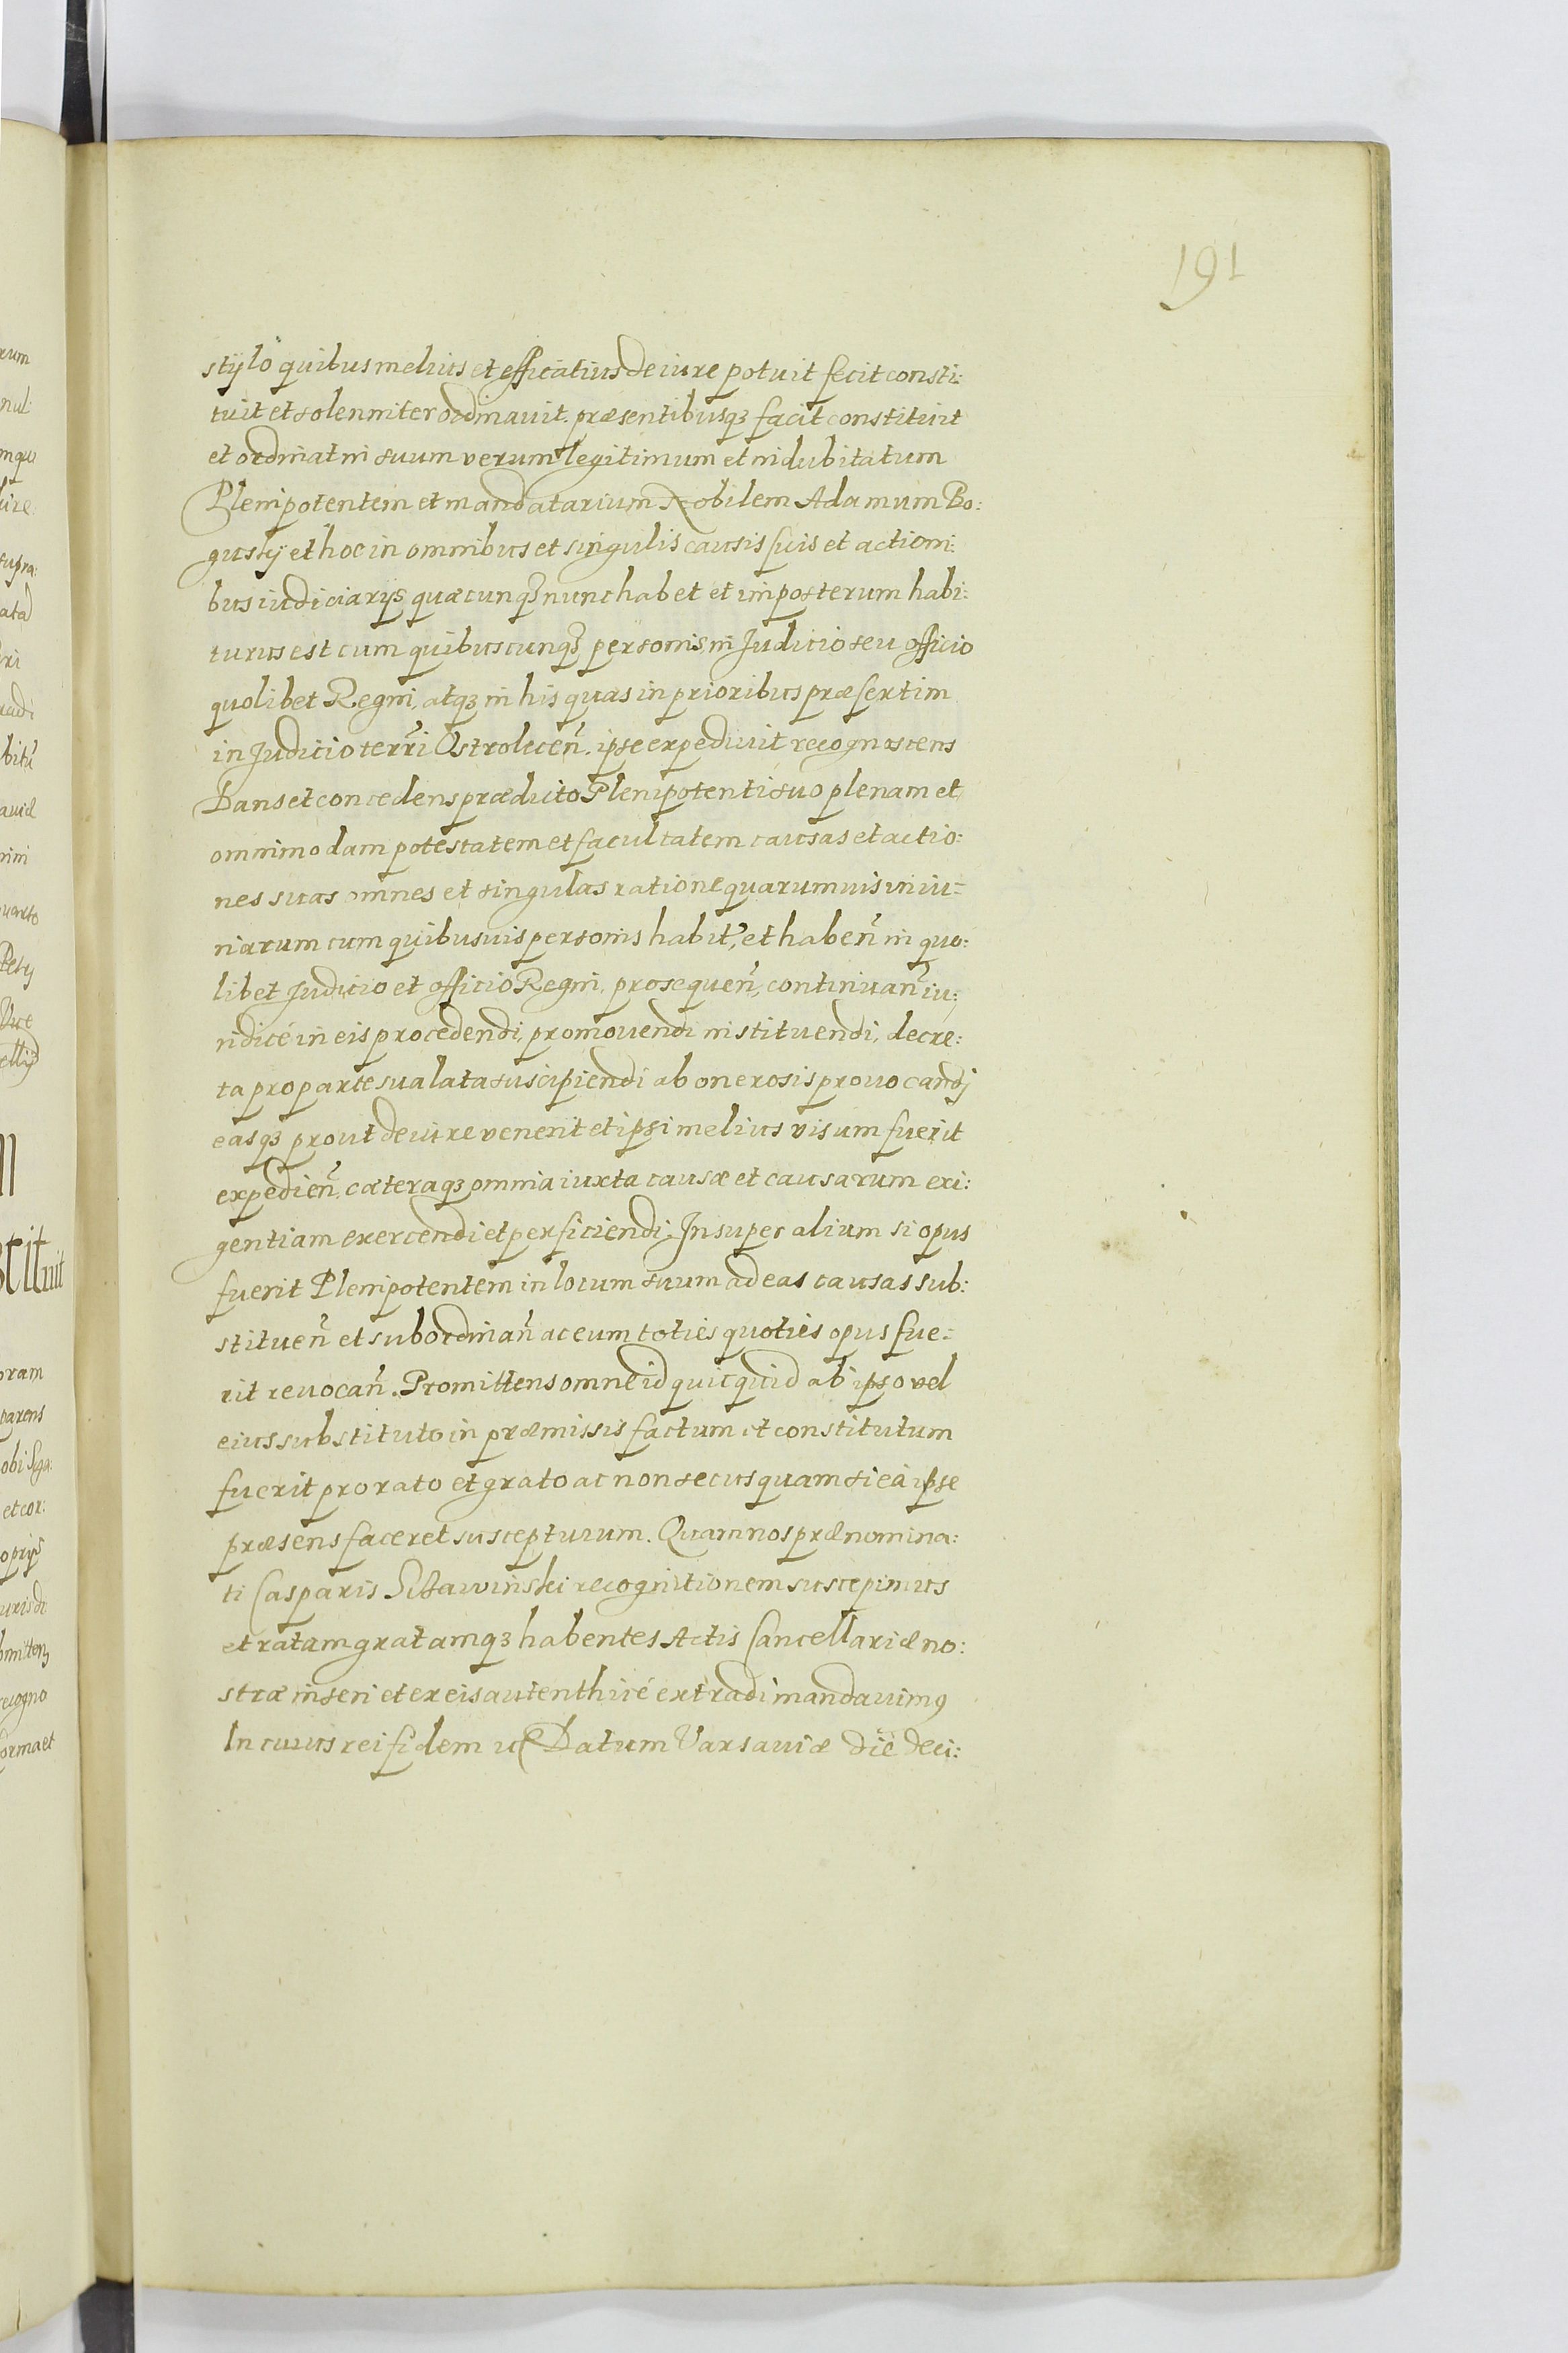 191
stylo quibus melius et efficatius de iure potuit fecit consti:
tuit et solenniter ordinauit. præsentibusq3 facit constituit
et ordinat in suum verum legitimum et indubitatum
Plenipotentem et mandatarium Nobilem Adamum Bo:
guskij et hoc in omnibus et singulis causis suis et actioni:
bus iudiciarijs quæcunq3 nunc habet et imposterum habi:
turus est cum quibuscunq3 personis in Judicio seu officio
quolibet Regni, atq3 in his quas in prioribus præsertim
in Judicio terri Ostrolecen. ipse expediuit recognoscens
Dans et concedens prædicto Plenipotenti suo plenam et
omnimodam potestatem et facultatem causas et actio:
nes suas omnes et singulas ratione quarumuis iniu:
riarum cum quibusuis personis habit, et haben in quo:
libet Judicio et officio Regni, prosequen, continuan iu:
ridicé in eis procedendi, promouendi instituendi, decre:
ta pro parte sua lata suscipiendi ab onerosis prouocandj
easq3 prout de iure venerit et ipsi melius visum fuerit
expedien, cæteraq3 omnia iuxta causæ et causarum exi:
gentiam exercendi et perficiendi. Insuper alium si opus
fuerit Plenipotentem in locum suum ad eas causas sub:
stituen et subordinan ac eum toties quoties opus fue:
rit reuocan. Promittens omne id quicquid ab ipso vel
eius substituto in præmissis factum et constitutum
fuerit pro rato et grato ac non secus quam si ea ipse
præsens faceret suscepturum. Quam nos prænomina:
ti Casparis recognitionem suscepimus
et ratam gratamq3 habentes Actis Cancellariæ no:
stræ inseri et ex eis autenthicé extradi mandauim9
In cuius rei fidem Datum Varsauiæ die deci: